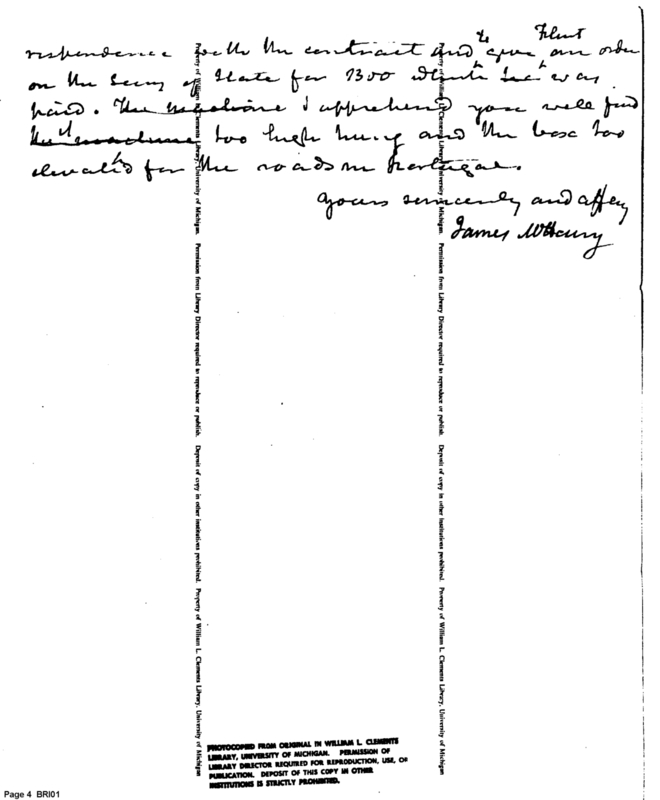 to Flint
respondence with the contract and give an order
on the Secy of State for 1300 which was
paid. The machine I apprehend you will find
the machine too high hung and the box too
elevated for the roads in Portugal.
Yours sincerely and affly
James McHenry
Property of William L. Clements Library, University of Michigan. Permission from Library Director required to reproduce or publish. Deposit of copy in other institutions prohibited. Property of William L. Clements Library, University of Michigan
Property of William L. Clements Library, University of Michigan. Permission from Library Director required to reproduce or publish. Deposit of copy in other institutions prohibited. Property of William L. Clements Library, University of Michigan
PHOTOCOPIED FROM ORIGINAL IN WILLIAM L. CLEMENTS
LIBRARY, UNIVERSITY OF MICHIGAN. PERMISSION OF
LIBRARY DIRECTOR REQUIRED FOR REPRODUCTION, USE, OR
PUBLICATION. DEPOSIT OF THIS COPY IN OTHER
INSTITUTIONS IS STRICTLY PROHIBITED.
Page 4 BRI01